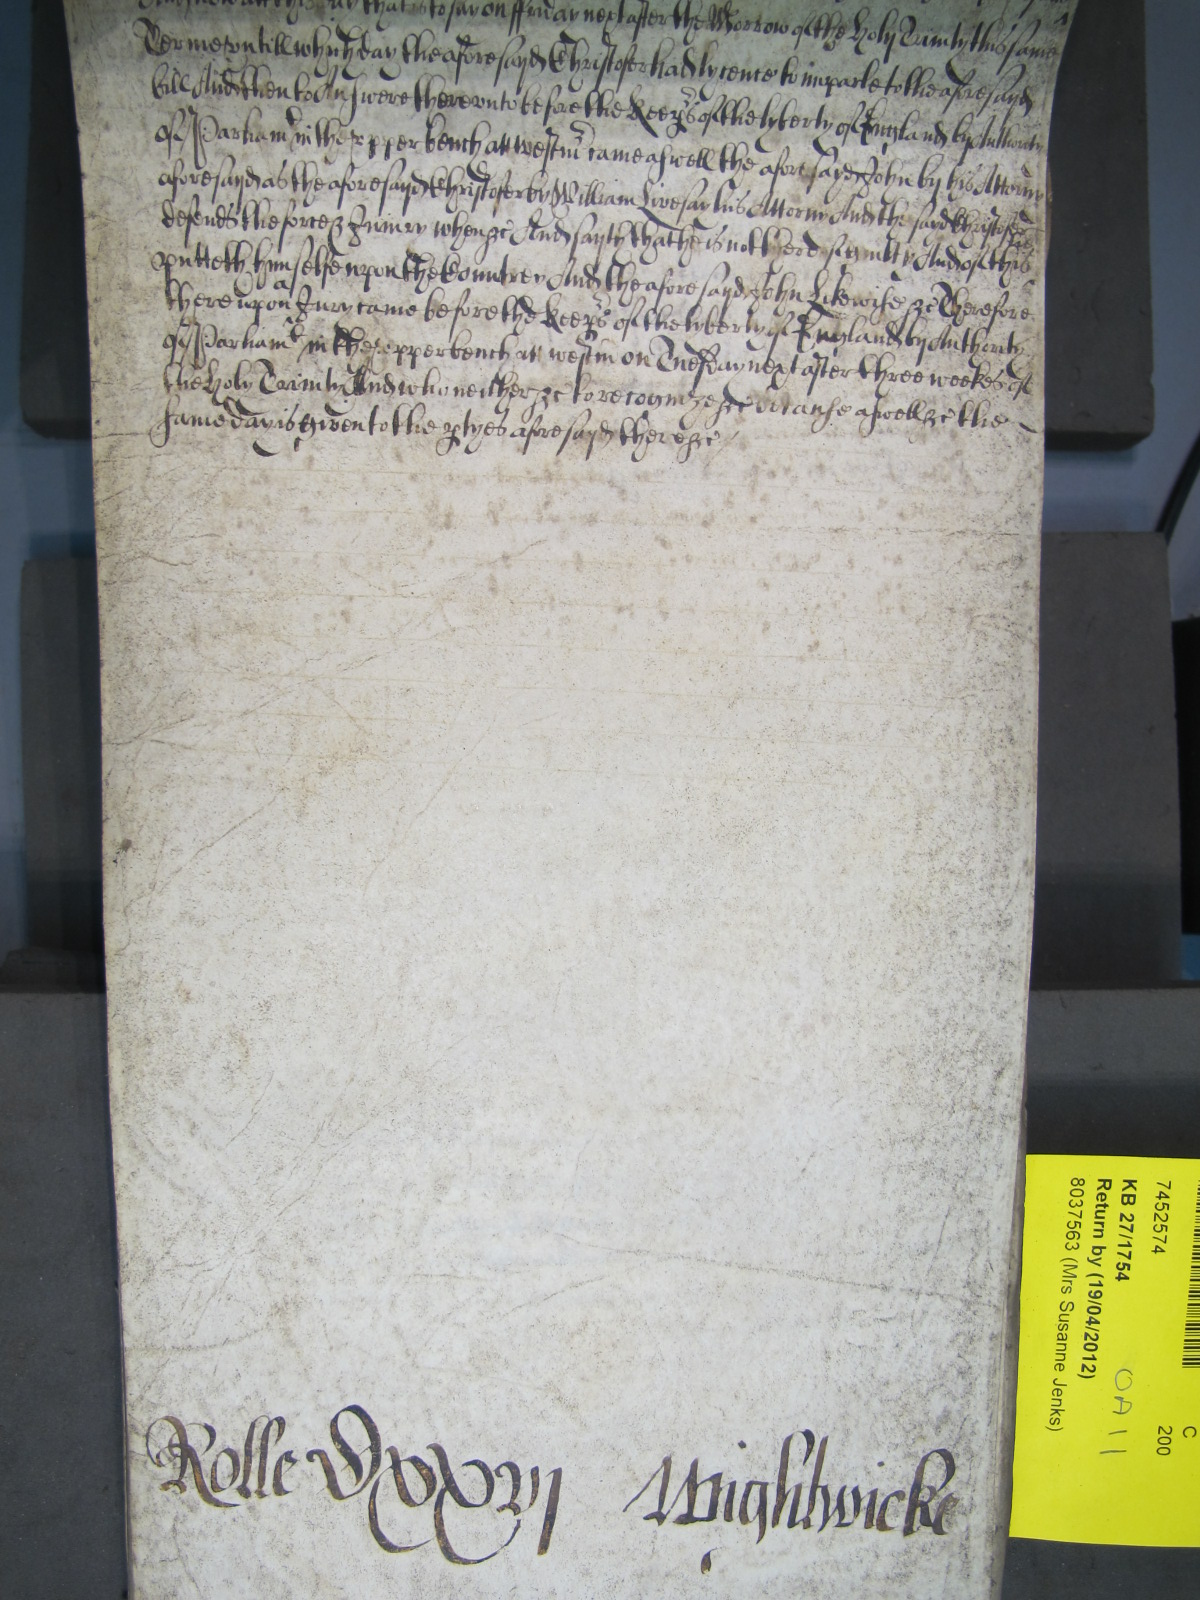 att this day that is to say on ffryday next after the Morrow of the Holy Trinity this same
Terme untill which day the aforesayd Christofer had lycence to imparle to the aforesayd
bill And then to Answere thereunto before the Keeprs of the lyberty of England by Authority
of Parliamt in the upper bench att westmr came aswell the aforesayd John by his Attorny
aforesayd as the aforesayd Christofer by William Livesay his Attorny And the sayd Christofer
defends the force & Iniury when &c And sayth that he is not thereof guilty And of this
putteth himselfe upon the Countrey And the aforesayd John Likewise &c Therefore
thereupon a Jury came before the Keeprs of the lyberty of England by Authority
of Parliamt in the upper bench att westm on Tuesday next after three weekes of
the Holy Trinity And who neither &c to recognize &c because aswell &c the
same day is given to the ptyes aforesayd there &c
Rolle DXXVI Wightwicke
7452574
KB 27/1754
Return by (19/04/2012)
8037563 (Mrs Susanne Jenks)
C
200
OA 11